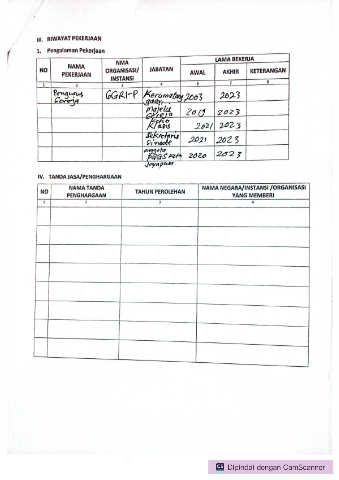 III. RIWAYAT PEKERJAAN
1. Pengalaman Pekerjaan
NO NAMA PEKERJAAN NMA ORGANISASI/ INSTANSI JABATAN LAMA BEKERJA
AWAL AKHIR KETERANGAN
1 2 3 4 6 7 8
Pengurus Gereja GGRI-P 2003 2023
Majelis Gereja 2019 2023
Klasis 2021 2023
Sekretaris Sinode 2021 2023
anggota 2020 2023
Jayapura
IV. TANDA JASA/PENGHARGAAN
NO NAMA TANDA PENGHARGAAN TAHUN PEROLEHAN NAMA NEGARA/INSTANSI /ORGANISASI YANG MEMBERI
1 2 3 4
CS Dipindai dengan CamScanner